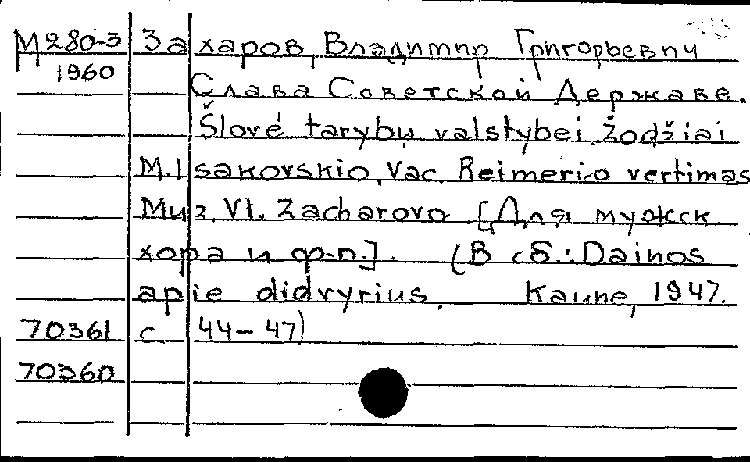 М280-3 Захаров, Владимир Григорьевич
1960 Слава Советской Державе.
Šlovė tarybų valstybei. Žodžiai
M. Isakovskio, Vac. Reimerio vertimas
Muz. Vl. Zacharovo [Для мужск
хора и ф-п.]. (В сб.: Dainos
apie didvyrius. Kaune, 1947.
70361 с 44-47)
70360